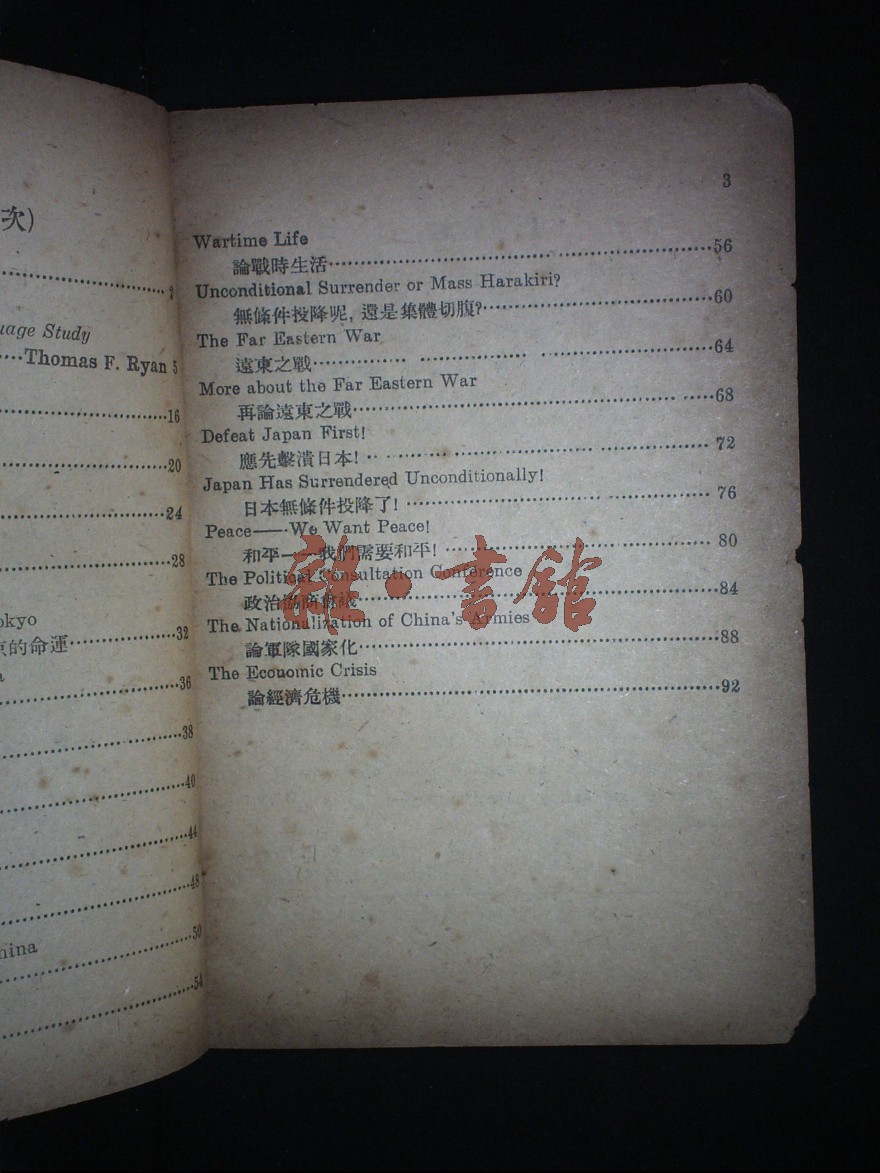 次)
uage Study
Thomas F. Ryan 5
16
20
24
28
okyo
的命運 32
36
38
40
44
48
hina
50
54
3
Wartime Life
論戰時生活 56
Unconditional Surrender or Mass Harakiri?
無條件投降呢, 還是集體切腹? 60
The Far Eastern War
遠東之戰 64
More about the Far Eastern War
再論遠東之戰 68
Defeat Japan First!
應先擊潰日本! 72
Japan Has Surrendered Unconditionally!
日本無條件投降了! 76
Peace——We Want Peace!
和平——我們需要和平! 80
The Political Consultation Conference
政治協商會議 84
The Nationalization of China's Armies
論軍隊國家化 88
The Ecouomic Crisis
論經濟危機 92
雜·書館